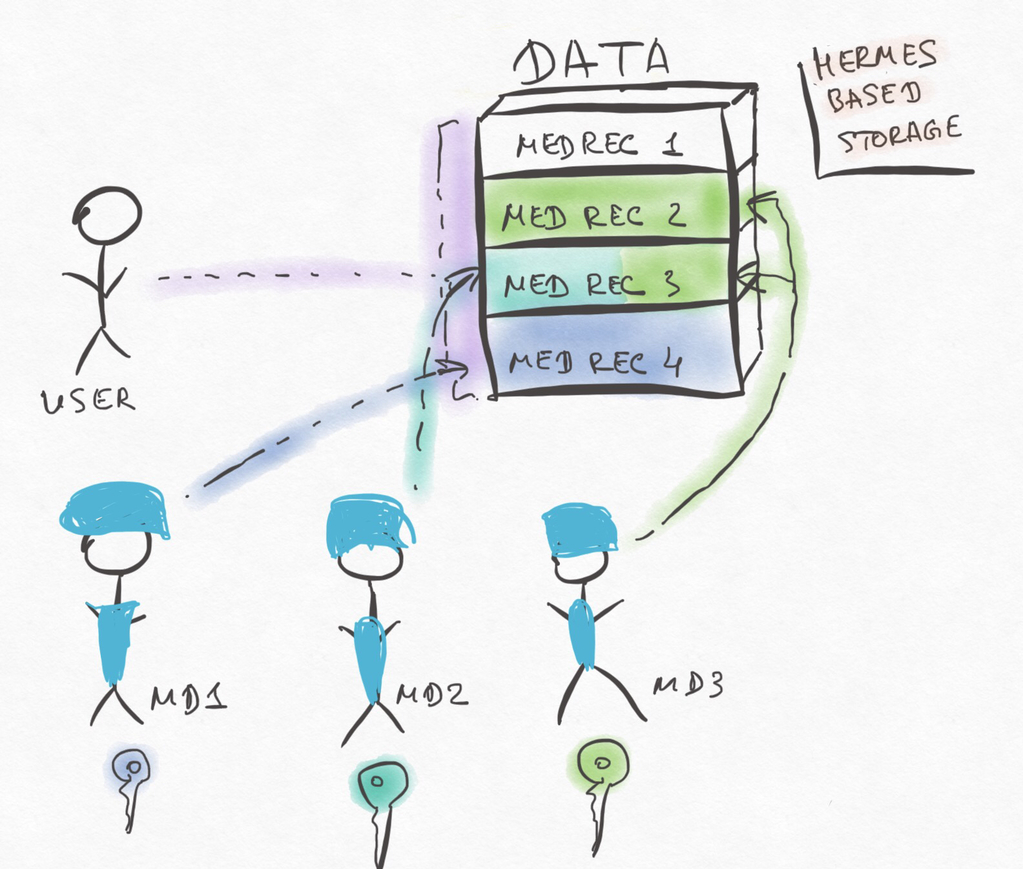 DATA
HERMES
BASED
STORAGE
MED REC 1
MED REC 2
MED REC 3
MED REC 4
USER
MD1
MD2
MD3